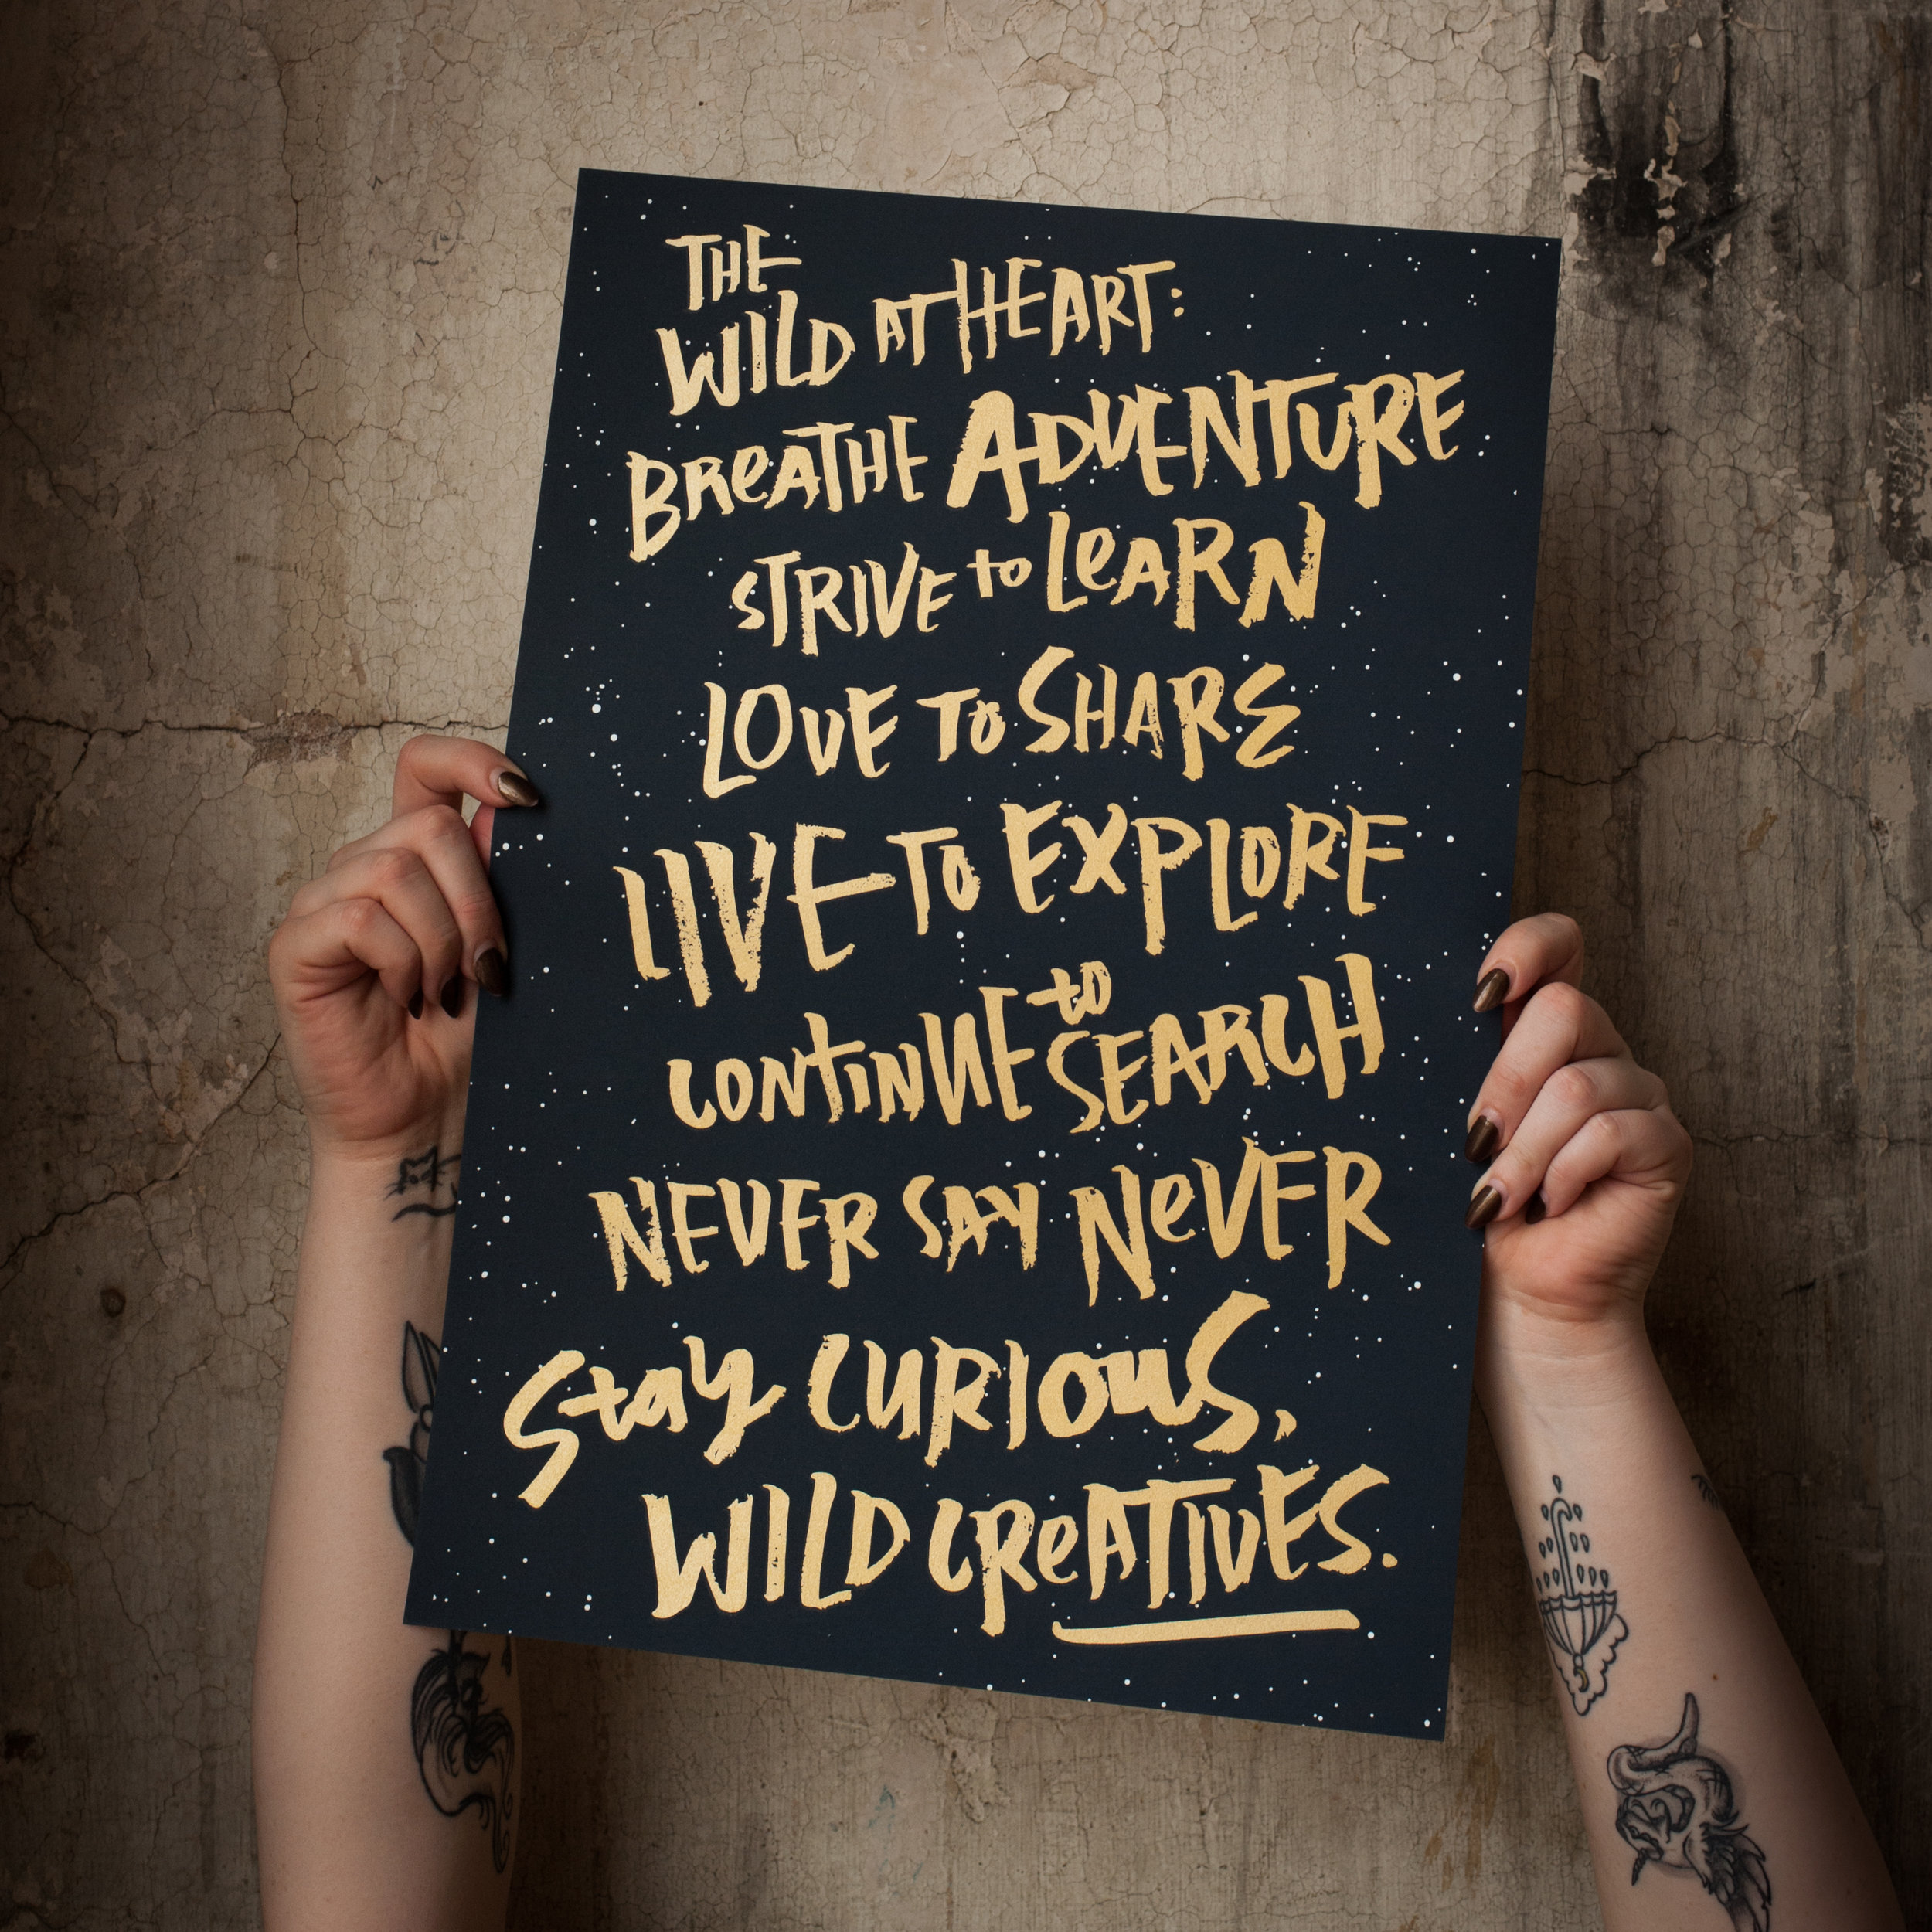 THE
WILD AT HEART:
BREATHE ADVENTURE
STRIVE to LEARN
LOVE TO SHARE
LIVE TO EXPLORE
CONTINUE to SEARCH
NEVER SAY NEVER
Stay CURIOUS,
WILD CREATIVES.